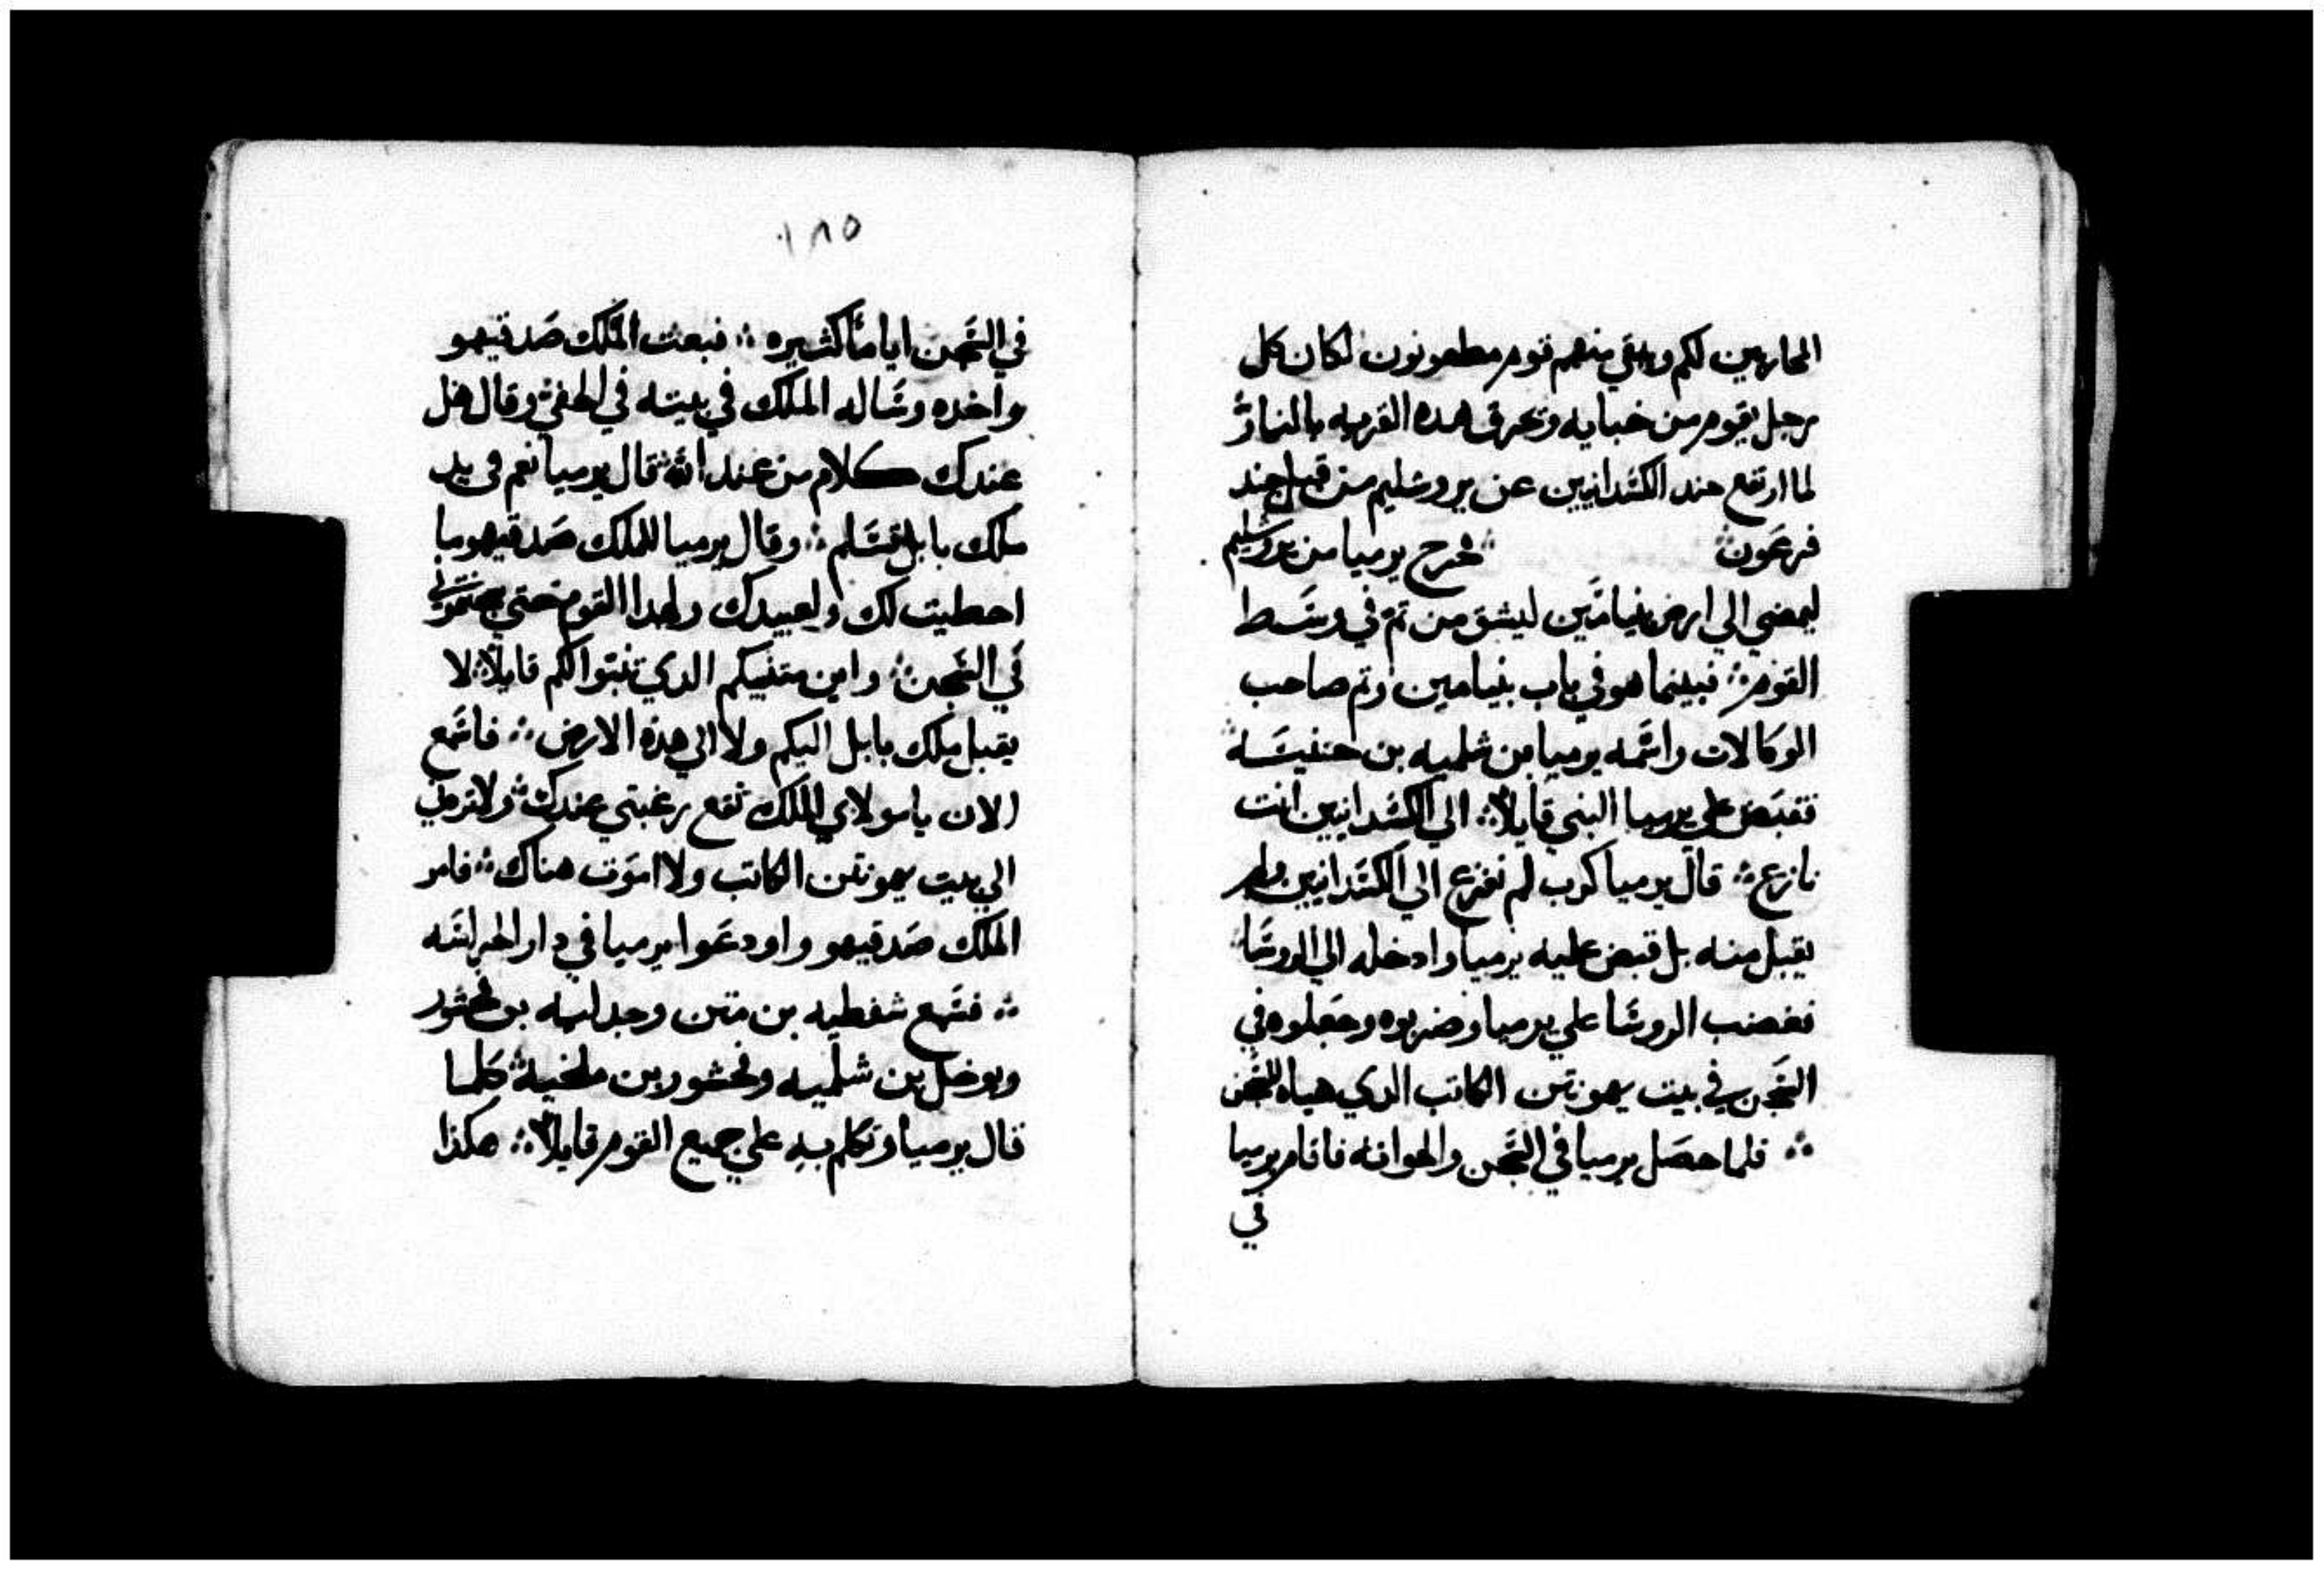 المحاربين لكم ويبقي منهم قوم مطعونون لكان كل
رجل يقوم من خبايه وتحرق هده القريه بالنار
لما ارتفع جند الكسدانيين عن يروشليم من قبل جند
فرعون ∴ ∴ فخرج يرميا من يروشليم
ليمضي الي ارض بنيامين ليشق من تم في وسط
القوم ∴ فبينما هو في باب بنيامين وتم صاحب
الوكالات واسمه يرميا بن شلميه بن حننيه
فقبض علي يرميا النبي قايلاً ∴ الي الكسدانيين انت
نازع ∴ قال يرميا كدب لم نفزع الي الكسدانيين ولم
يقبل منه بل قبض عليه يرميا وادخله الي الروسا
فغضب الروسا علي يرميا وضربوه وجعلوه في
السجن في بيت يهونتن الكاتب الدي هياه للسجن
∴ فلما حصل يرميا في السجن والهوانه فاقام يرميا
في
١٨٥
في السجن اياماً كثيره ∴ فبعت الملك صدقيهو
واخده وساله الملك في بيته في الخفي وقال هل
عندك كلام من عند الله قال يرميا نعم في يد
ملك بابل تسلم ∴ وقال يرميا للملك صدقيهو ما
اخطيت لك ولعبيدك ولهدا القوم حتي
في السجن ∴ واين متنبيكم الدي تنبوا لكم قايلاً لا
يقبل ملك بابل اليكم ولا الي هذه الارض ∴ فاسمع
الان يا مولاي الملك تقع رغبتي عندك ∴ ولا تردني
الي بيت يهونتن الكاتب ولا اموت هناك ∴ فامر
الملك صدقيهو واودعوا يرميا في دار الحراسه
∴ فسمع شفطيه بن متن وجدليه بن فحشور
ويوخل بن شلميه وفحشور بن ملخيه كلما
قال يرميا وتكلم به علي جميع القوم قايلاً ∴ هكذا